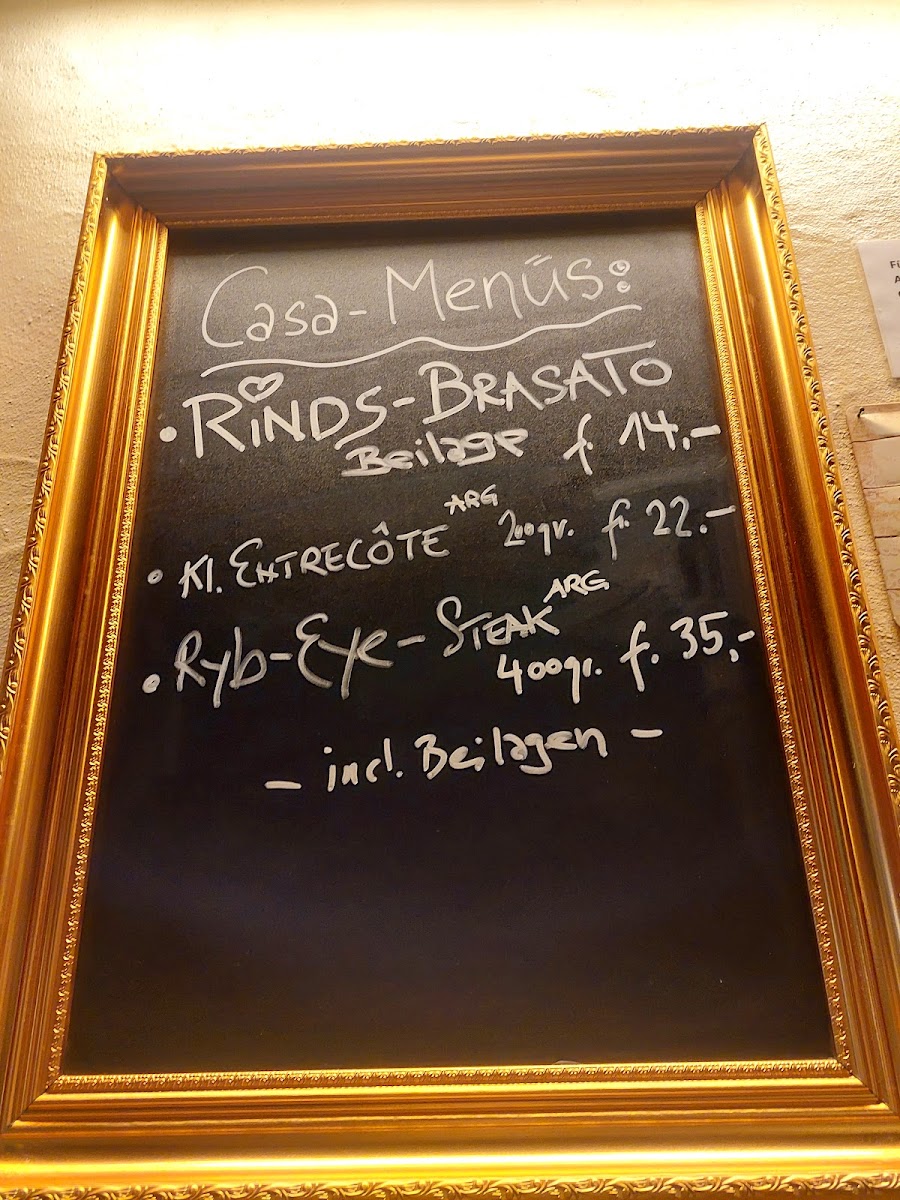 Casa-Menüs:
• RiNDS-BRASATO
Beilage f. 14.-
• Kl. ENTRECÔTE ARG 200gr. fr. 22.-
• Ryb-Eye-STEAK ARG
400gr. f. 35,-
- incl. Beilagen -